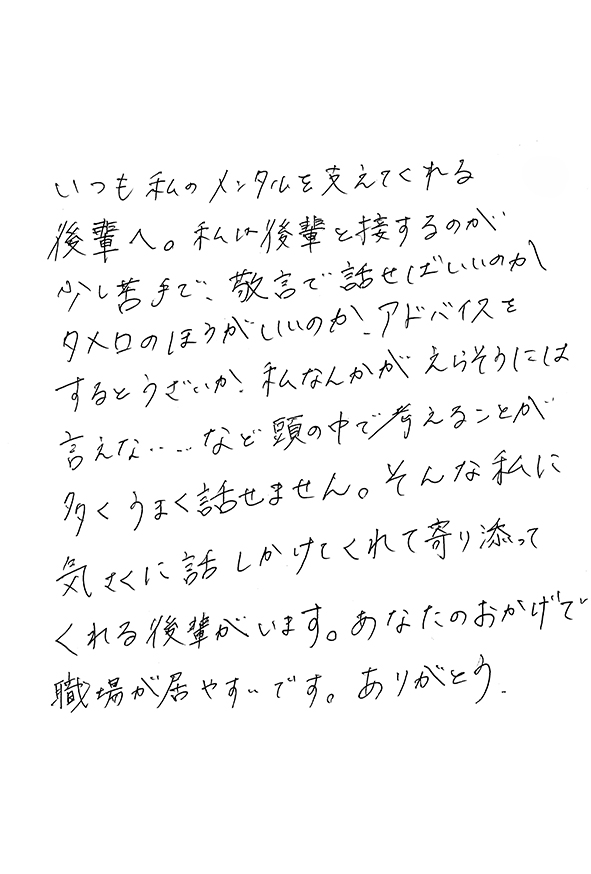 いつも私のメンタルを支えてくれる
後輩へ。私は後輩と接するのが
少し苦手で、敬言で話せばいいのか
タメ口のほうがいいのか、アドバイスを
するとうざいか、私なんかが えらそうには
言えな・・・・・など頭の中で考えることが
多くうまく話せません。そんな私に
気さくに話しかけてくれて寄り添って
くれる後輩がいます。あなたのおかげで
職場が居やすいです。ありがとう.